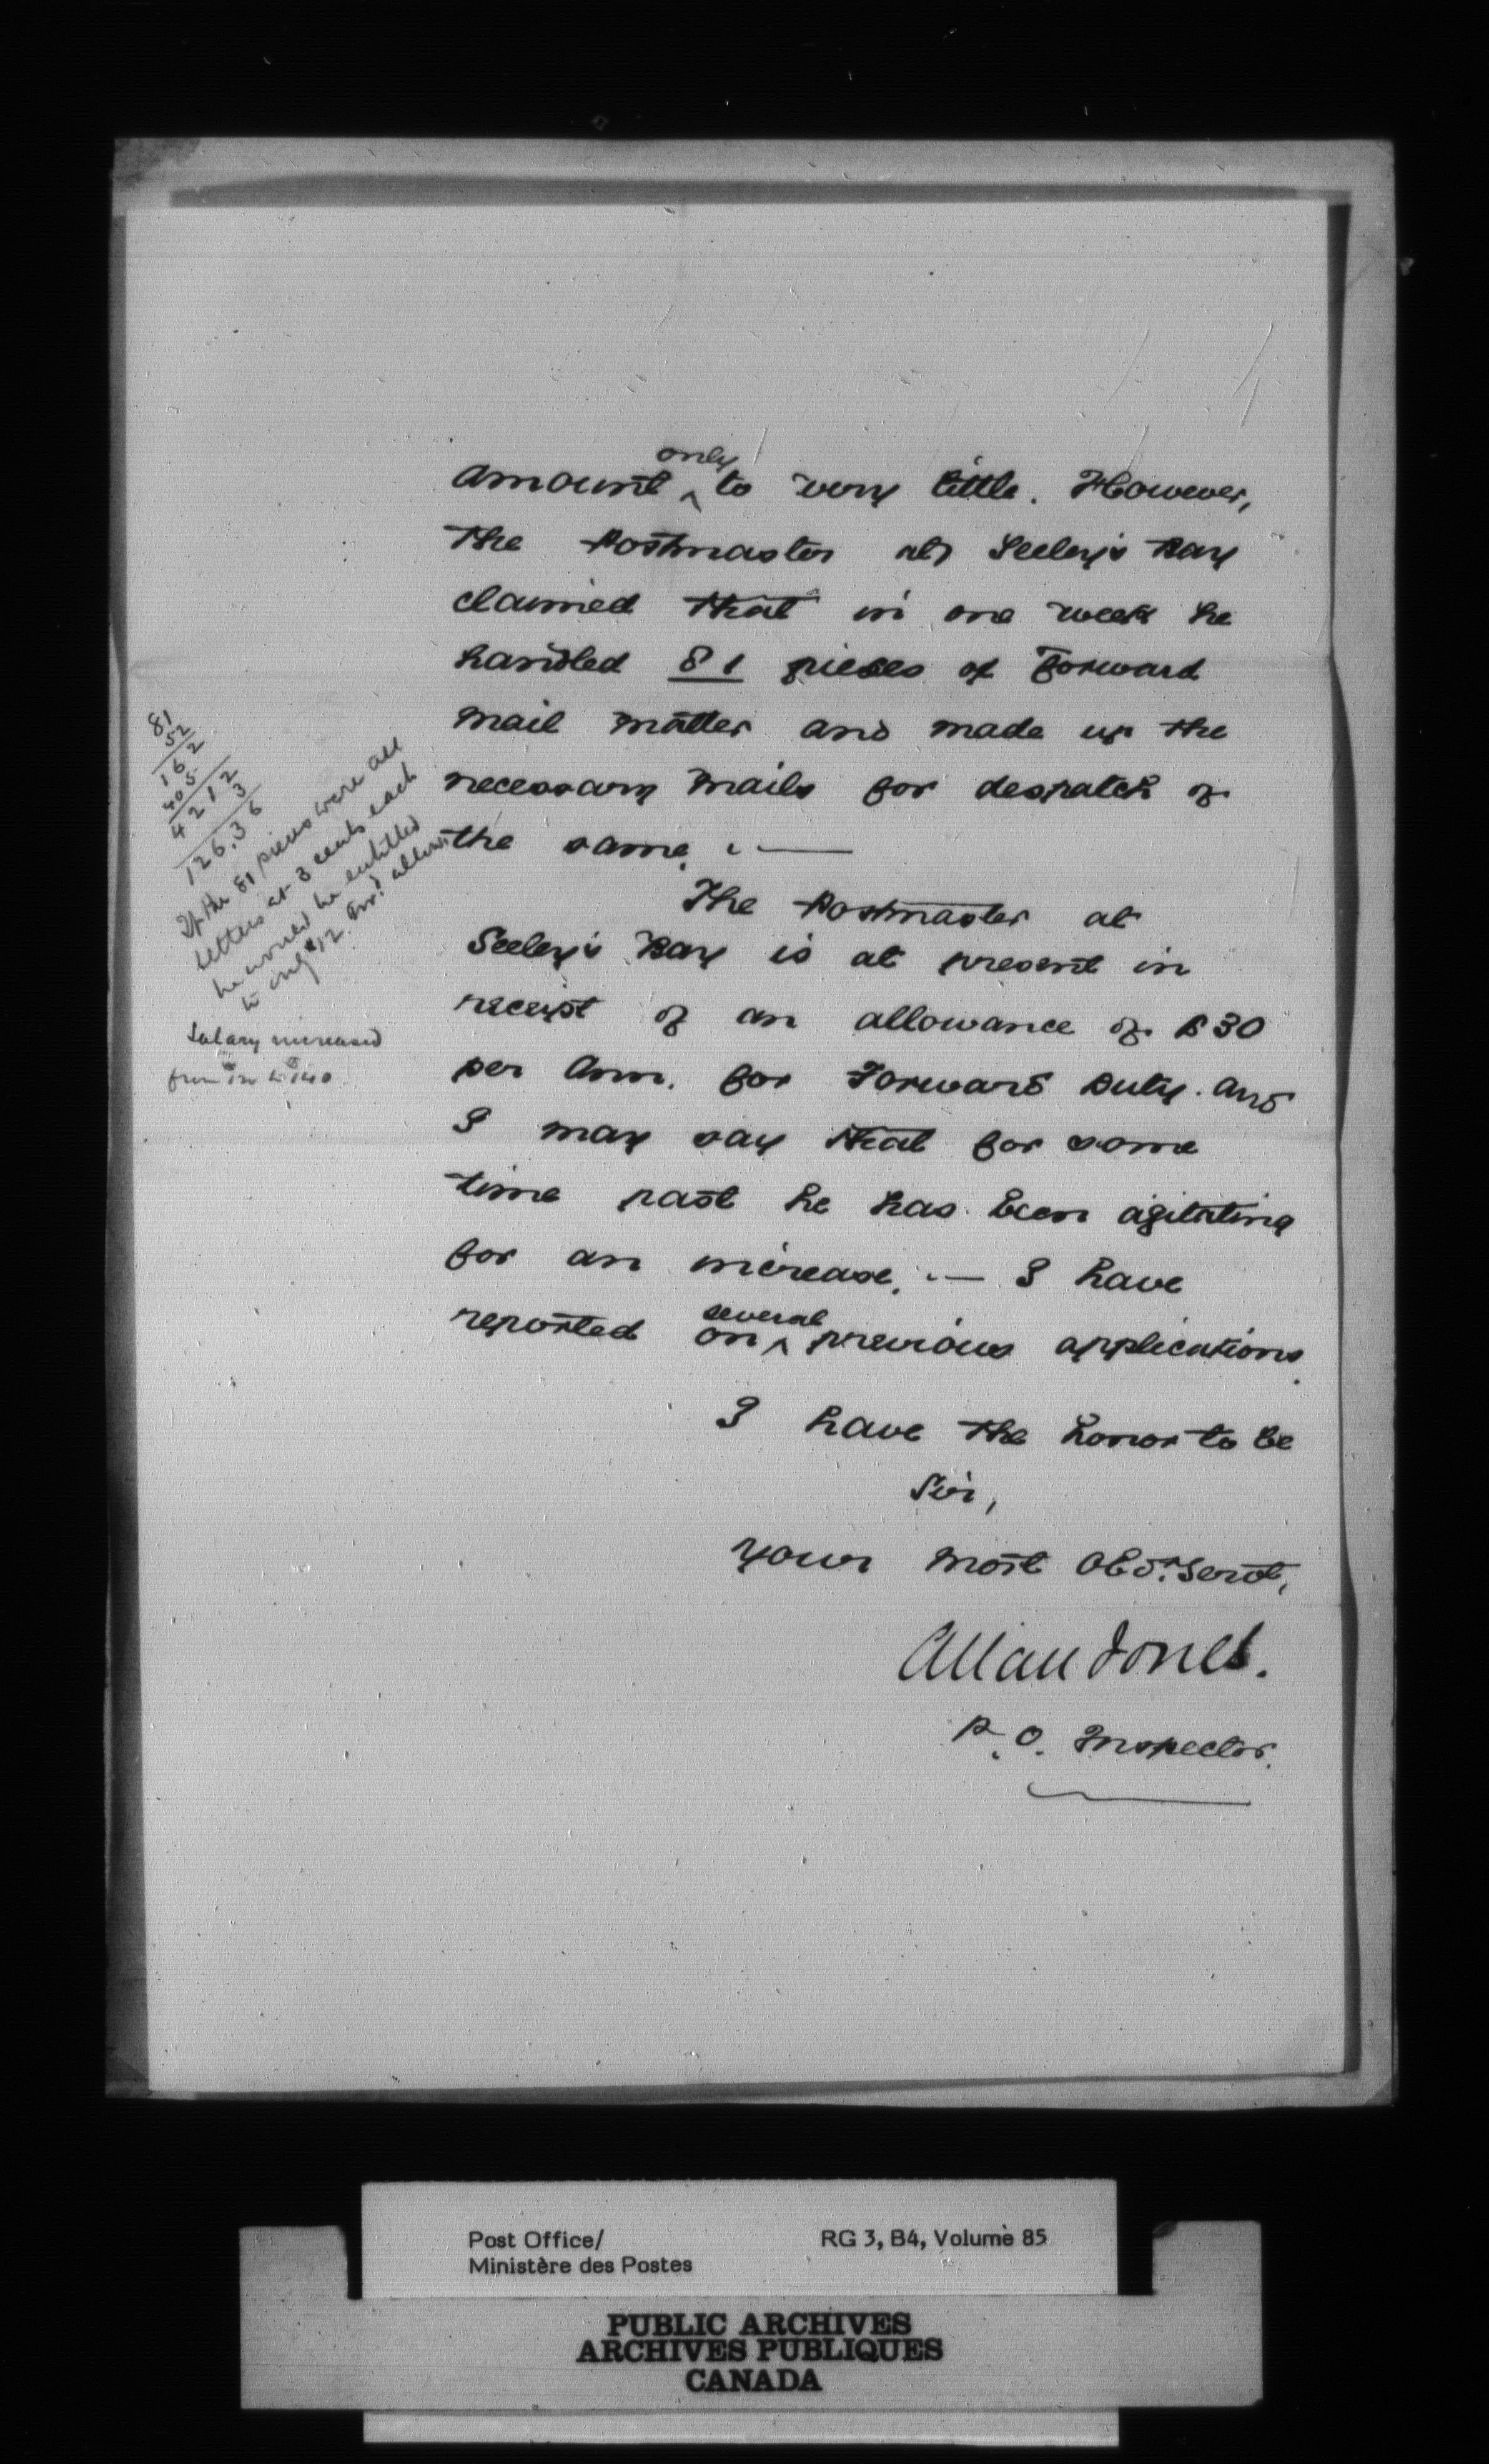 amount only to very little. However,
the Postmaster at Seeley's Bay
claimed that in one week he
handled 81 pieces of Forward
mail matter and made up the
necessary mails for despatch of
the same. —
The Postmaster at
Seeley's Bay is at present in
receipt of an allowance of $30
per Ann. for Forward Duty. and
I may say that for some
time past he has been agitating
for an increase. — I have
reported on several previous applications.
I have the honor to be
Sir,
Your most Obdt. Servt,
Allan Jones.
P.O. Inspector.
81
52
162
405
4212
3
126.36
If the 81 pieces were all
letters at 3 cents each
he would be entitled
to only $12. Forwd allow
Salary increased
from to $140
Post Office/
Ministère des Postes
RG 3, B4, Volume 85
PUBLIC ARCHIVES
ARCHIVES PUBLIQUES
CANADA